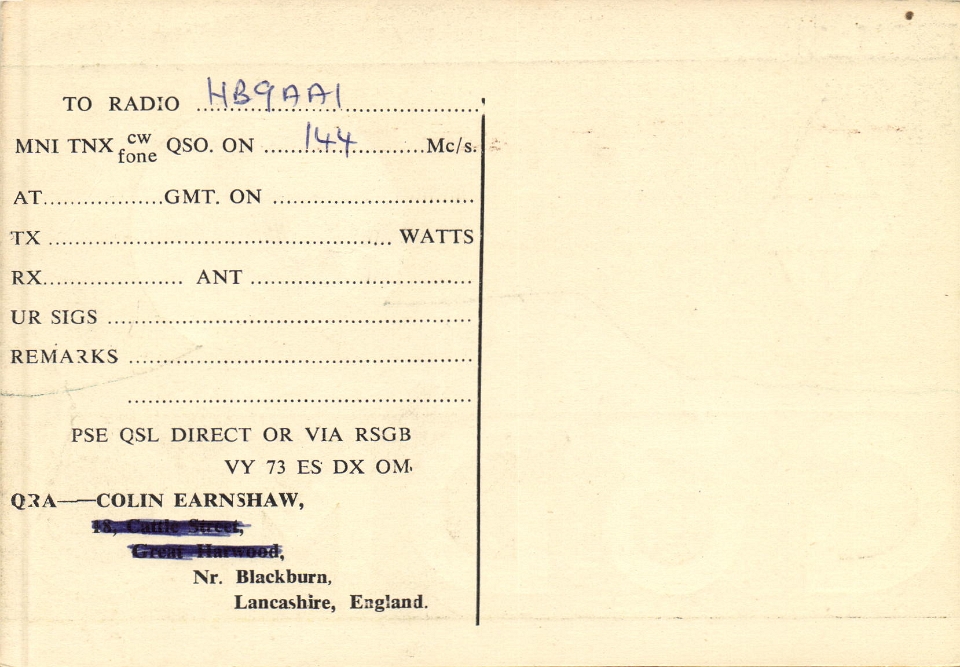 TO RADIO HB9AA1
MNI TNX cw fone QSO. ON 144 Mc/s.
AT.................GMT. ON .................................
TX ......................................................... WATTS
RX....................... ANT .....................................
UR SIGS .............................................................
REMARKS .........................................................
.........................................................
PSE QSL DIRECT OR VIA RSGB
VY 73 ES DX OM.
QRA——COLIN EARNSHAW,
18, Cattle Street,
Great Harwood,
Nr. Blackburn,
Lancashire, England.